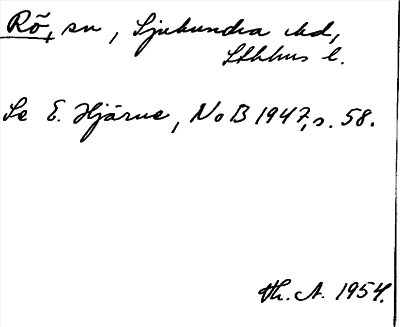 Rö, sn, Sjuhundra hd,
Sthlms l.
Se E. Hjärne, NoB 1947, s. 58.
Th. A. 1954.